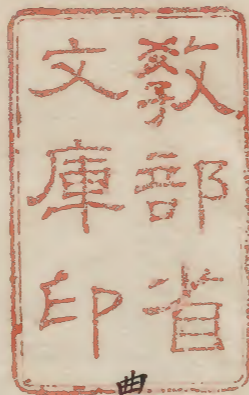 教部省
文庫印
曲